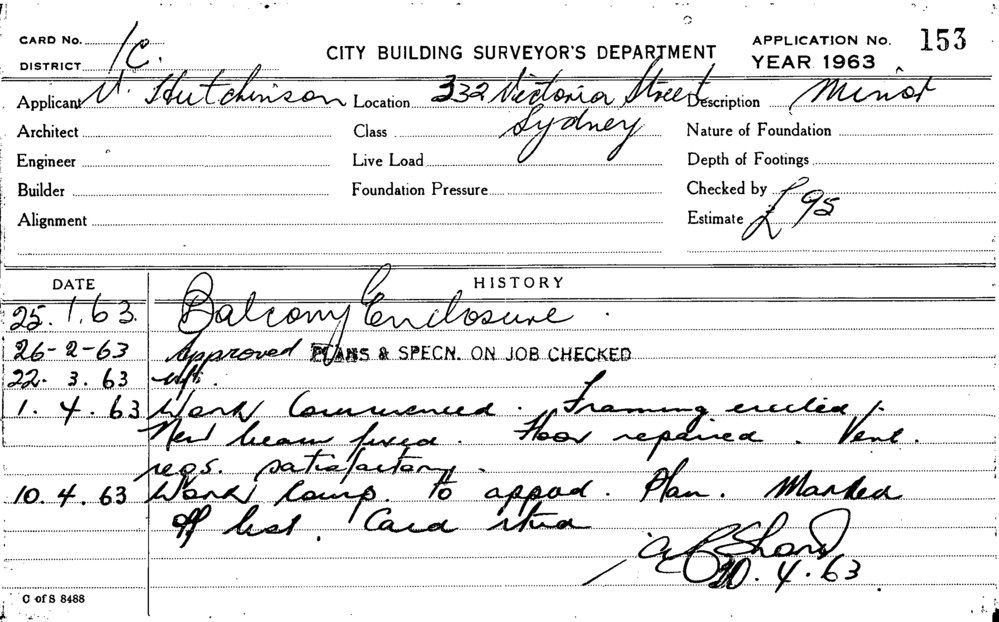 CARD No. 1c.
DISTRICT
CITY BUILDING SURVEYOR'S DEPARTMENT
APPLICATION No. 153
YEAR 1963
Applicant V. Hutchinson Location 332 Victoria Street Description Minor
Sydney
Architect Class Nature of Foundation
Engineer Live Load Depth of Footings
Builder Foundation Pressure Checked by
Alignment Estimate £95
DATE HISTORY
25.1.63. Balcony Enclosure.
26-2-63 Approved PLANS & SPECN. ON JOB CHECKED
22. 3. 63
1. 4. 63 Work Commenced. Framing erected
New beam fixed. Floor repaired. Vent.
regs. satisfactory.
10. 4. 63 Work Comp. to appvd. Plan. Marked
off list. Card
10. 4. 63
C of S 8488